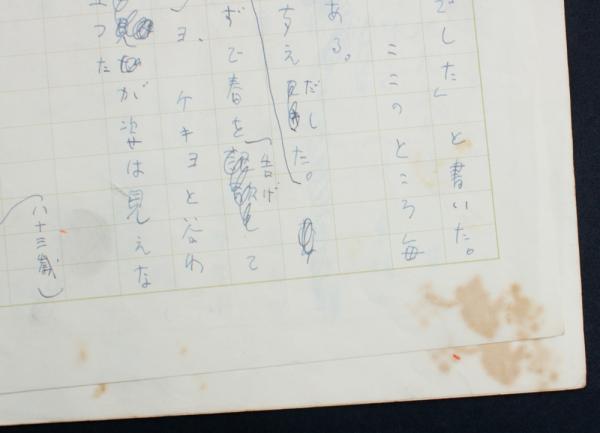 でした」と書いた。
ここのところ毎
ある。
すえだした。
ずで春を告げて
ヨ、ケキヨと谷わ
つたが姿は見えな
(八十三歳)